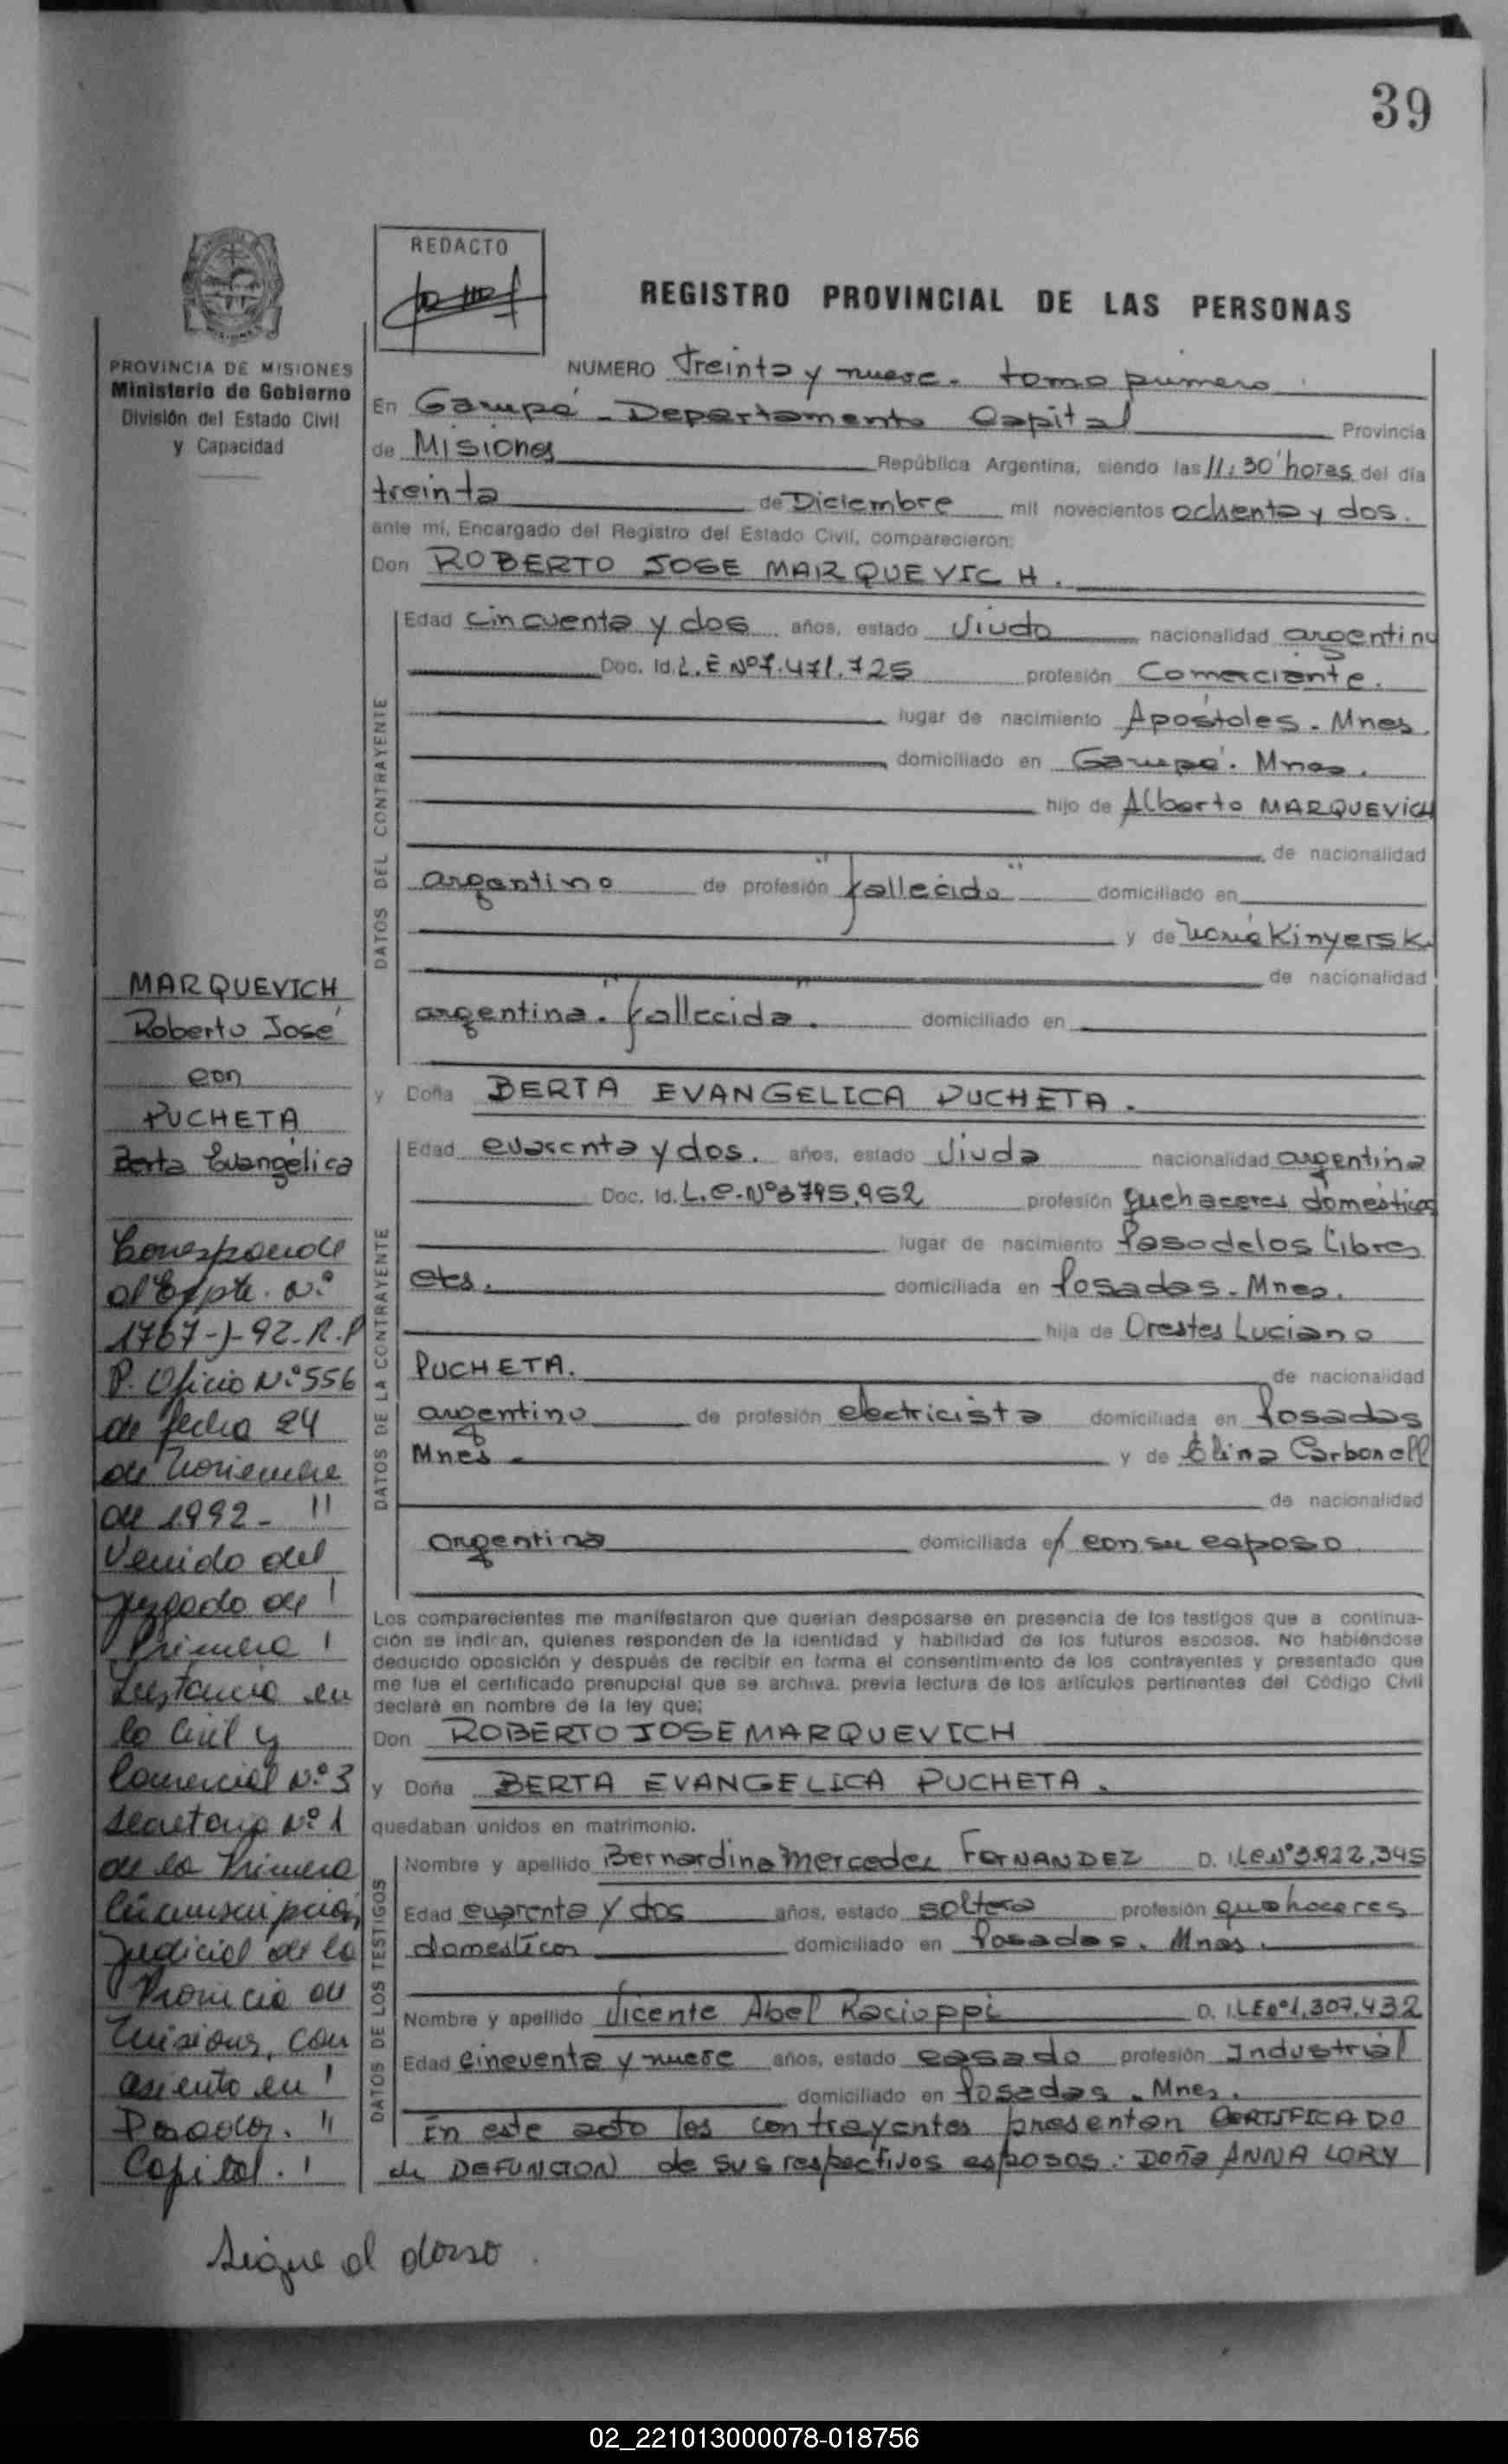 39
REDACTO
REGISTRO PROVINCIAL DE LAS PERSONAS
PROVINCIA DE MISIONES
Ministerio de Gobierno
División del Estado Civil
y Capacidad
NUMERO treinta y nueve. tomo primero
En Garupá - Departamento Capital Provincia
de Misiones República Argentina, siendo las 11:30 horas del día
treinta de Diciembre mil novecientos ochenta y dos.
ante mí, Encargado del Registro del Estado Civil, comparecieron:
Don ROBERTO JOSE MARQUEVICH.
DATOS DEL CONTRAYENTE
Edad cincuenta y dos años, estado viudo nacionalidad argentino
Doc. Id. L.E Nº 7.471.725 profesión Comerciante.
lugar de nacimiento Apóstoles - Mnes.
domiciliado en Garupá. Mnes.
hijo de Alberto MARQUEVICH
de nacionalidad
argentino de profesión "fallecido" domiciliado en
y de María Kinyerski
de nacionalidad
argentina. "fallecida". domiciliado en
y Doña BERTA EVANGELICA PUCHETA.
DATOS DE LA CONTRAYENTE
Edad cuarenta y dos. años, estado viuda nacionalidad argentina
Doc. Id. L.C. Nº 3795.952 profesión quehaceres domésticos
lugar de nacimiento Paso de los Libres
ctes. domiciliada en Posadas - Mnes.
hija de Orestes Luciano
PUCHETA. de nacionalidad
argentino de profesión electricista domiciliada en Posadas
Mnes. y de Elina Carbonell
de nacionalidad
argentina domiciliada en con su esposo
Los comparecientes me manifestaron que querían desposarse en presencia de los testigos que a continua-
ción se indican, quienes responden de la identidad y habilidad de los futuros esposos. No habiéndose
deducido oposición y después de recibir en forma el consentimiento de los contrayentes y presentado que
me fue el certificado prenupcial que se archiva, previa lectura de los artículos pertinentes del Código Civil
declaré en nombre de la ley que;
Don ROBERTO JOSE MARQUEVICH
y Doña BERTA EVANGELICA PUCHETA.
quedaban unidos en matrimonio.
DATOS DE LOS TESTIGOS
Nombre y apellido Bernardina Mercedes FERNANDEZ D. I. LC Nº 3.922.345
Edad cuarenta y dos años, estado soltera profesión quehaceres
domesticos domiciliado en Posadas. Mnes.
Nombre y apellido Vicente Abel Racioppi D. I. LE Nº 1.307.432
Edad cincuenta y nueve años, estado casado profesión Industrial
domiciliado en Posadas. Mnes.
En este acto los contrayentes presentan CERTIFICADO
de DEFUNCION de sus respectivos esposos: Doña ANNA LORY
MARQUEVICH
Roberto José
con
PUCHETA
Berta Evangélica
Corresponde
al Expte. Nº
1767-J-92-R.P
P. Oficio Nº 556
de fecha 24
de Noviembre
de 1992 - "
Venido del
Juzgado de
Primera
Instancia en
lo Civil y
Comercial Nº 3
Secretaría Nº 1
de la Primera
Circunscripción
Judicial de la
Provincia de
Misiones, con
asiento en
Posadas. "
Capital.
Sigue al dorso.
02_221013000078-018756